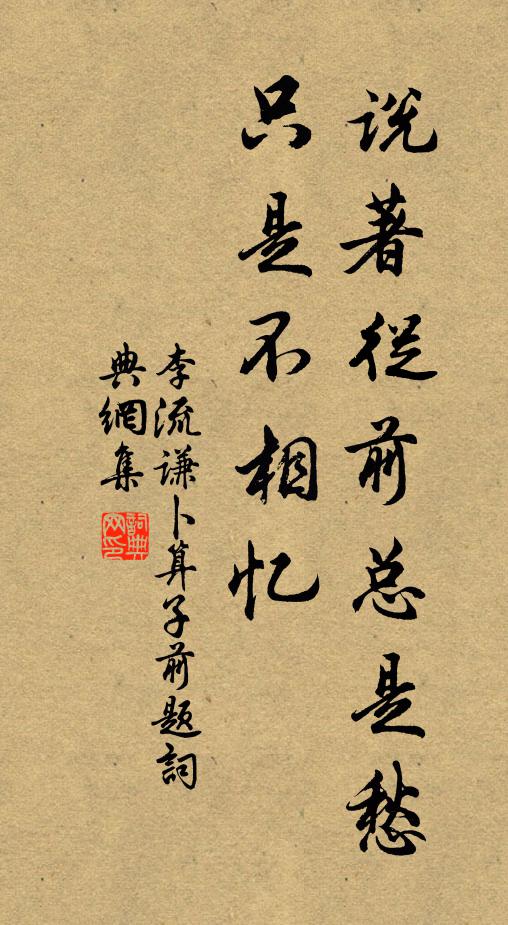 说著從前总是愁
只是不相忆
李流谦卜算子前题詞
典網集
詞典网印